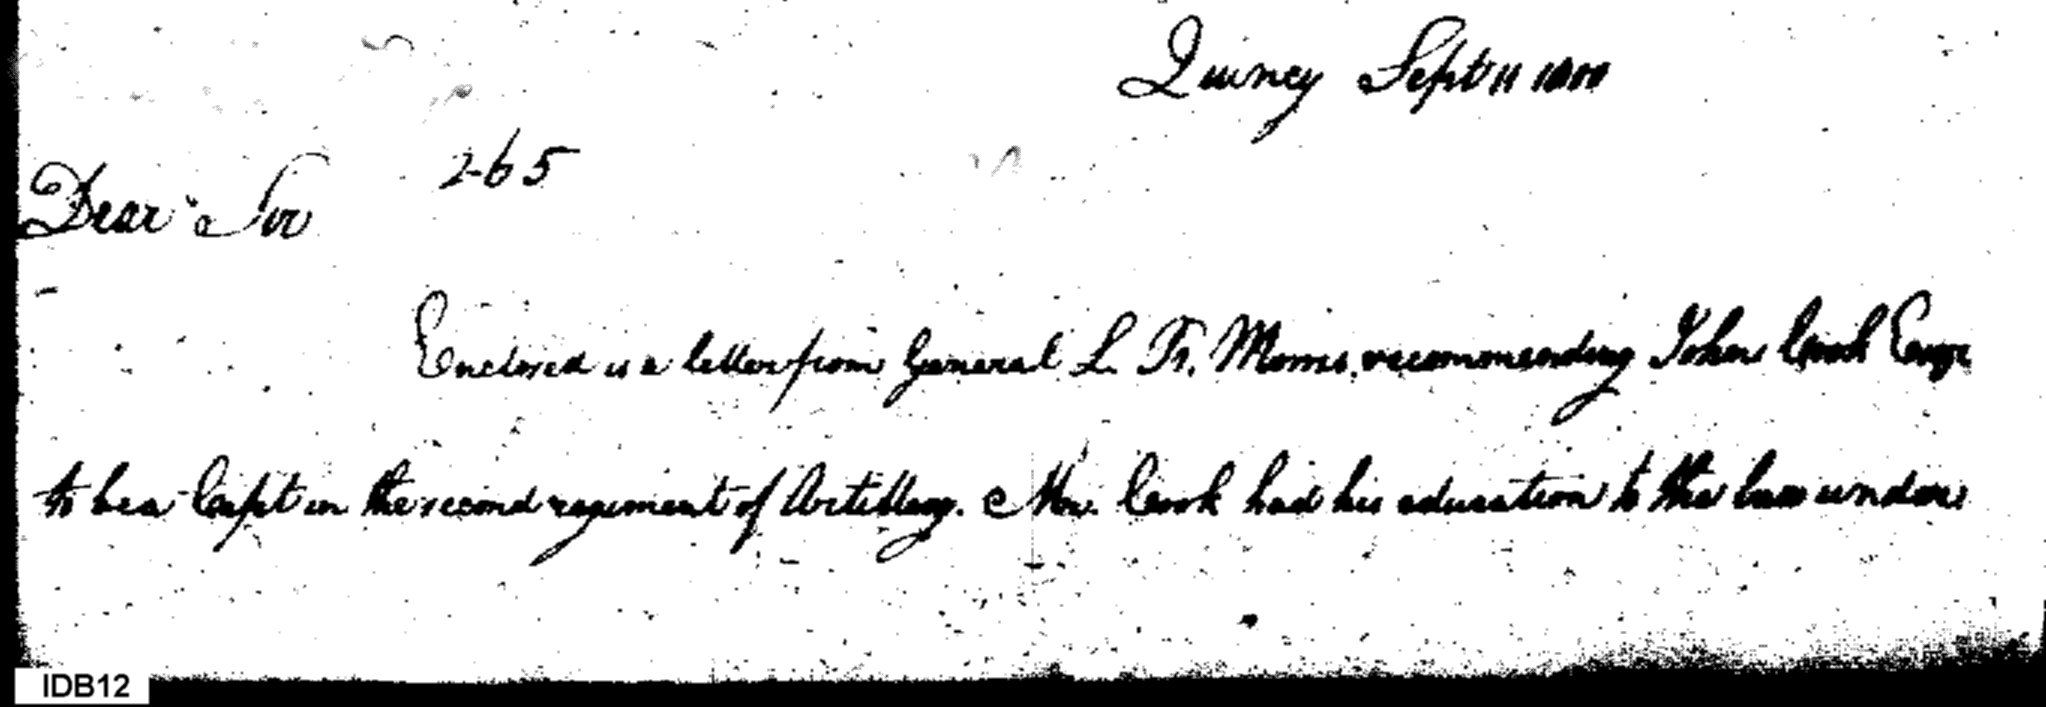 Quincy Sept 11 1800
265
Dear Sir
Enclosed is a letter from General L. R. Morris, recommending John Cook Esqr
to be a Capt in the second regiment of Artillery. Mr. Cook had his education to the law under
IDB12